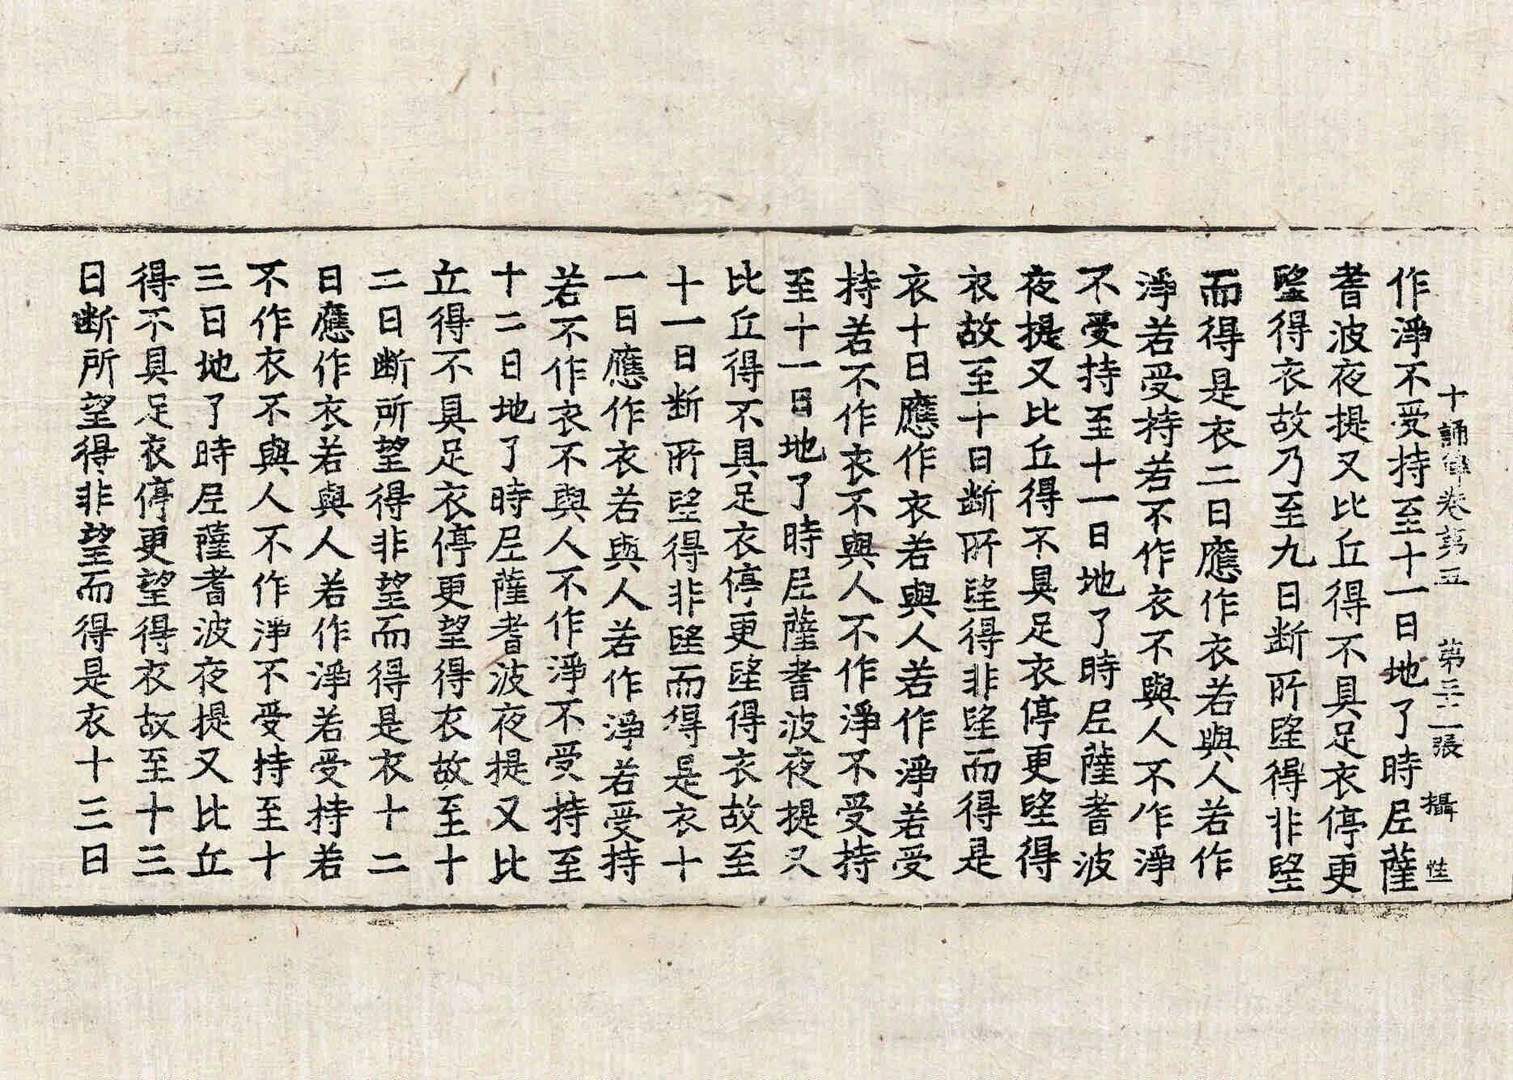 十誦律卷第五 第三二張 攝 性
作淨不受持至十一日地了時尼薩
耆波夜提又比丘得不具足衣停更
望得衣故乃至九日断所望得非望
而得是衣二日應作衣若與人若作
淨若受持若不作衣不與人不作淨
不受持至十一日地了時尼薩耆波
夜提又比丘得不具足衣停更望得
衣故至十日断所望得非望而得是
衣十日應作衣若與人若作淨若受
持若不作衣不與人不作淨不受持
至十一日地了時尼薩耆波夜提又
比丘得不具足衣停更望得衣故至
十一日断所望得非望而得是衣十
一日應作衣若與人若作淨若受持
若不作衣不與人不作淨不受持至
十二日地了時尼薩耆波夜提又比
丘得不具足衣停更望得衣故至十
二日断所望得非望而得是衣十二
日應作衣若與人若作淨若受持若
不作衣不與人不作淨不受持至十
三日地了時尼薩耆波夜提又比丘
得不具足衣停更望得衣故至十三
日断所望得非望而得是衣十三日